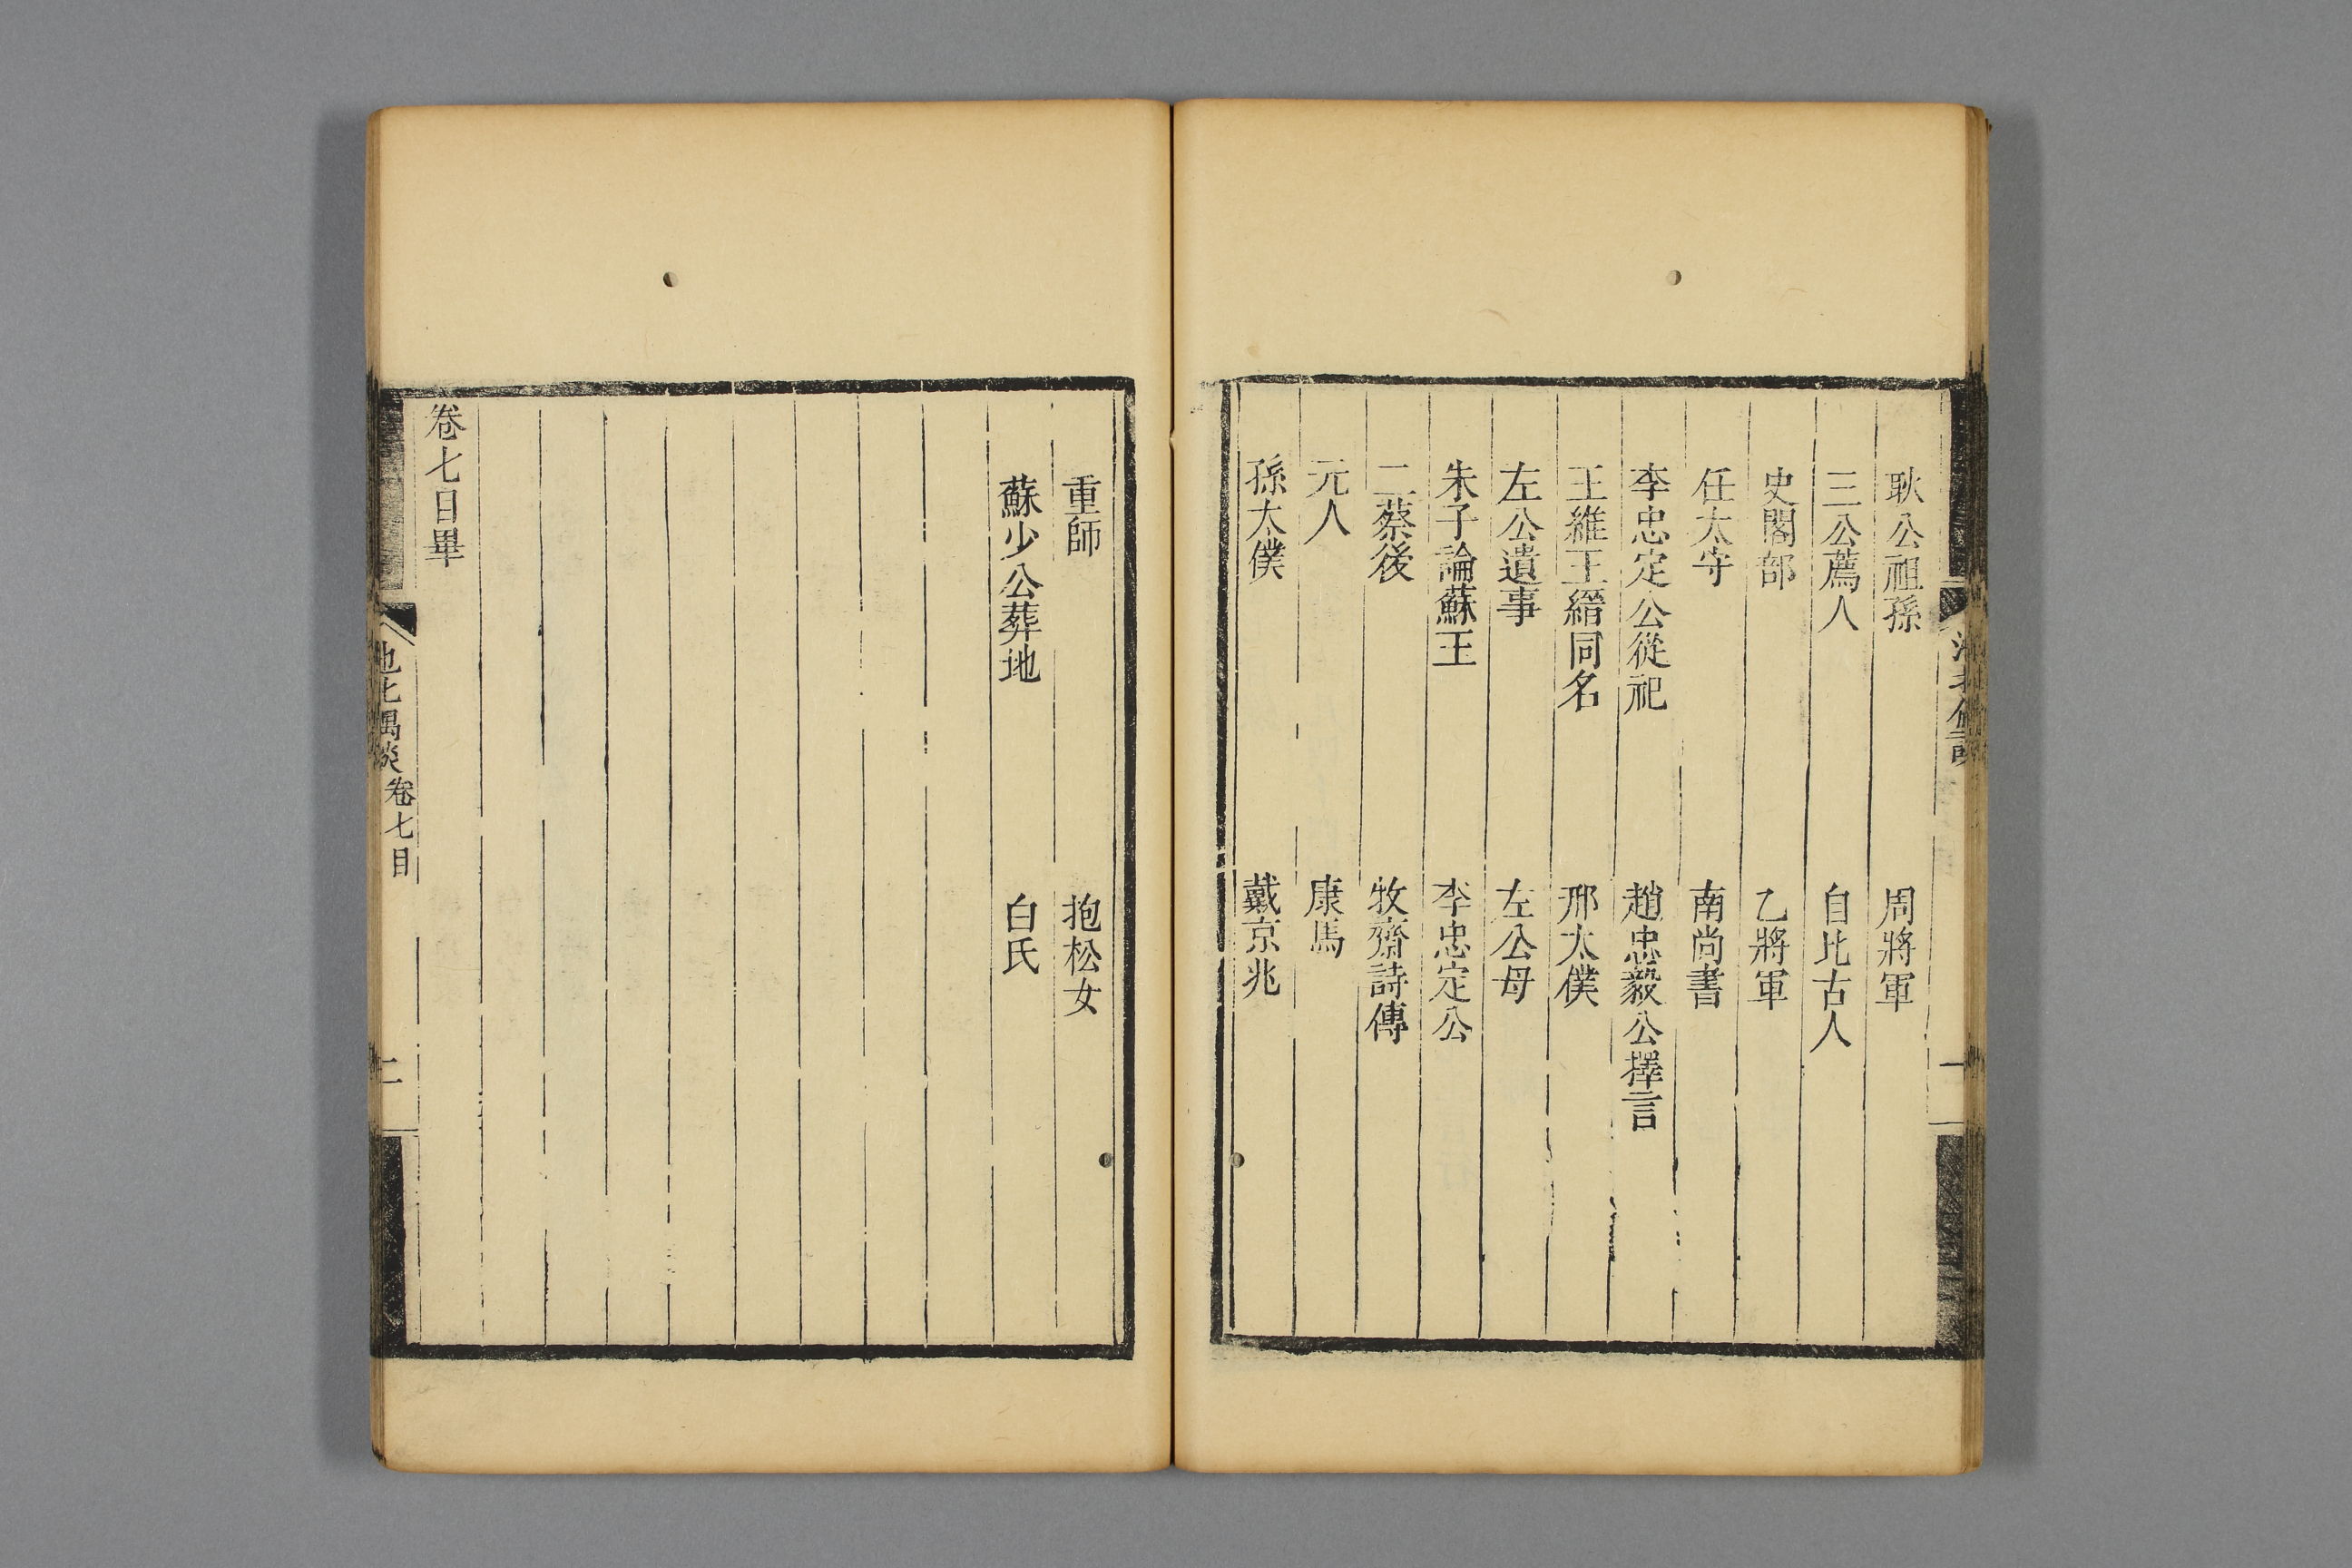 耿公祖孫　周將軍
三公薦人　自比古人
史閣部　乙將軍
任太守　南尚書
李忠定公從祀　趙忠毅公擇言
王維王縉同名　邢太僕
左公遺事　左公母
朱子論蘇王　李忠定公
二蔡後　牧齋詩傳
元人　康馬
孫太僕　戴京兆
一
重師　抱松女
蘇少公葬地　白氏
卷七目畢
池北偶談　卷七目　二